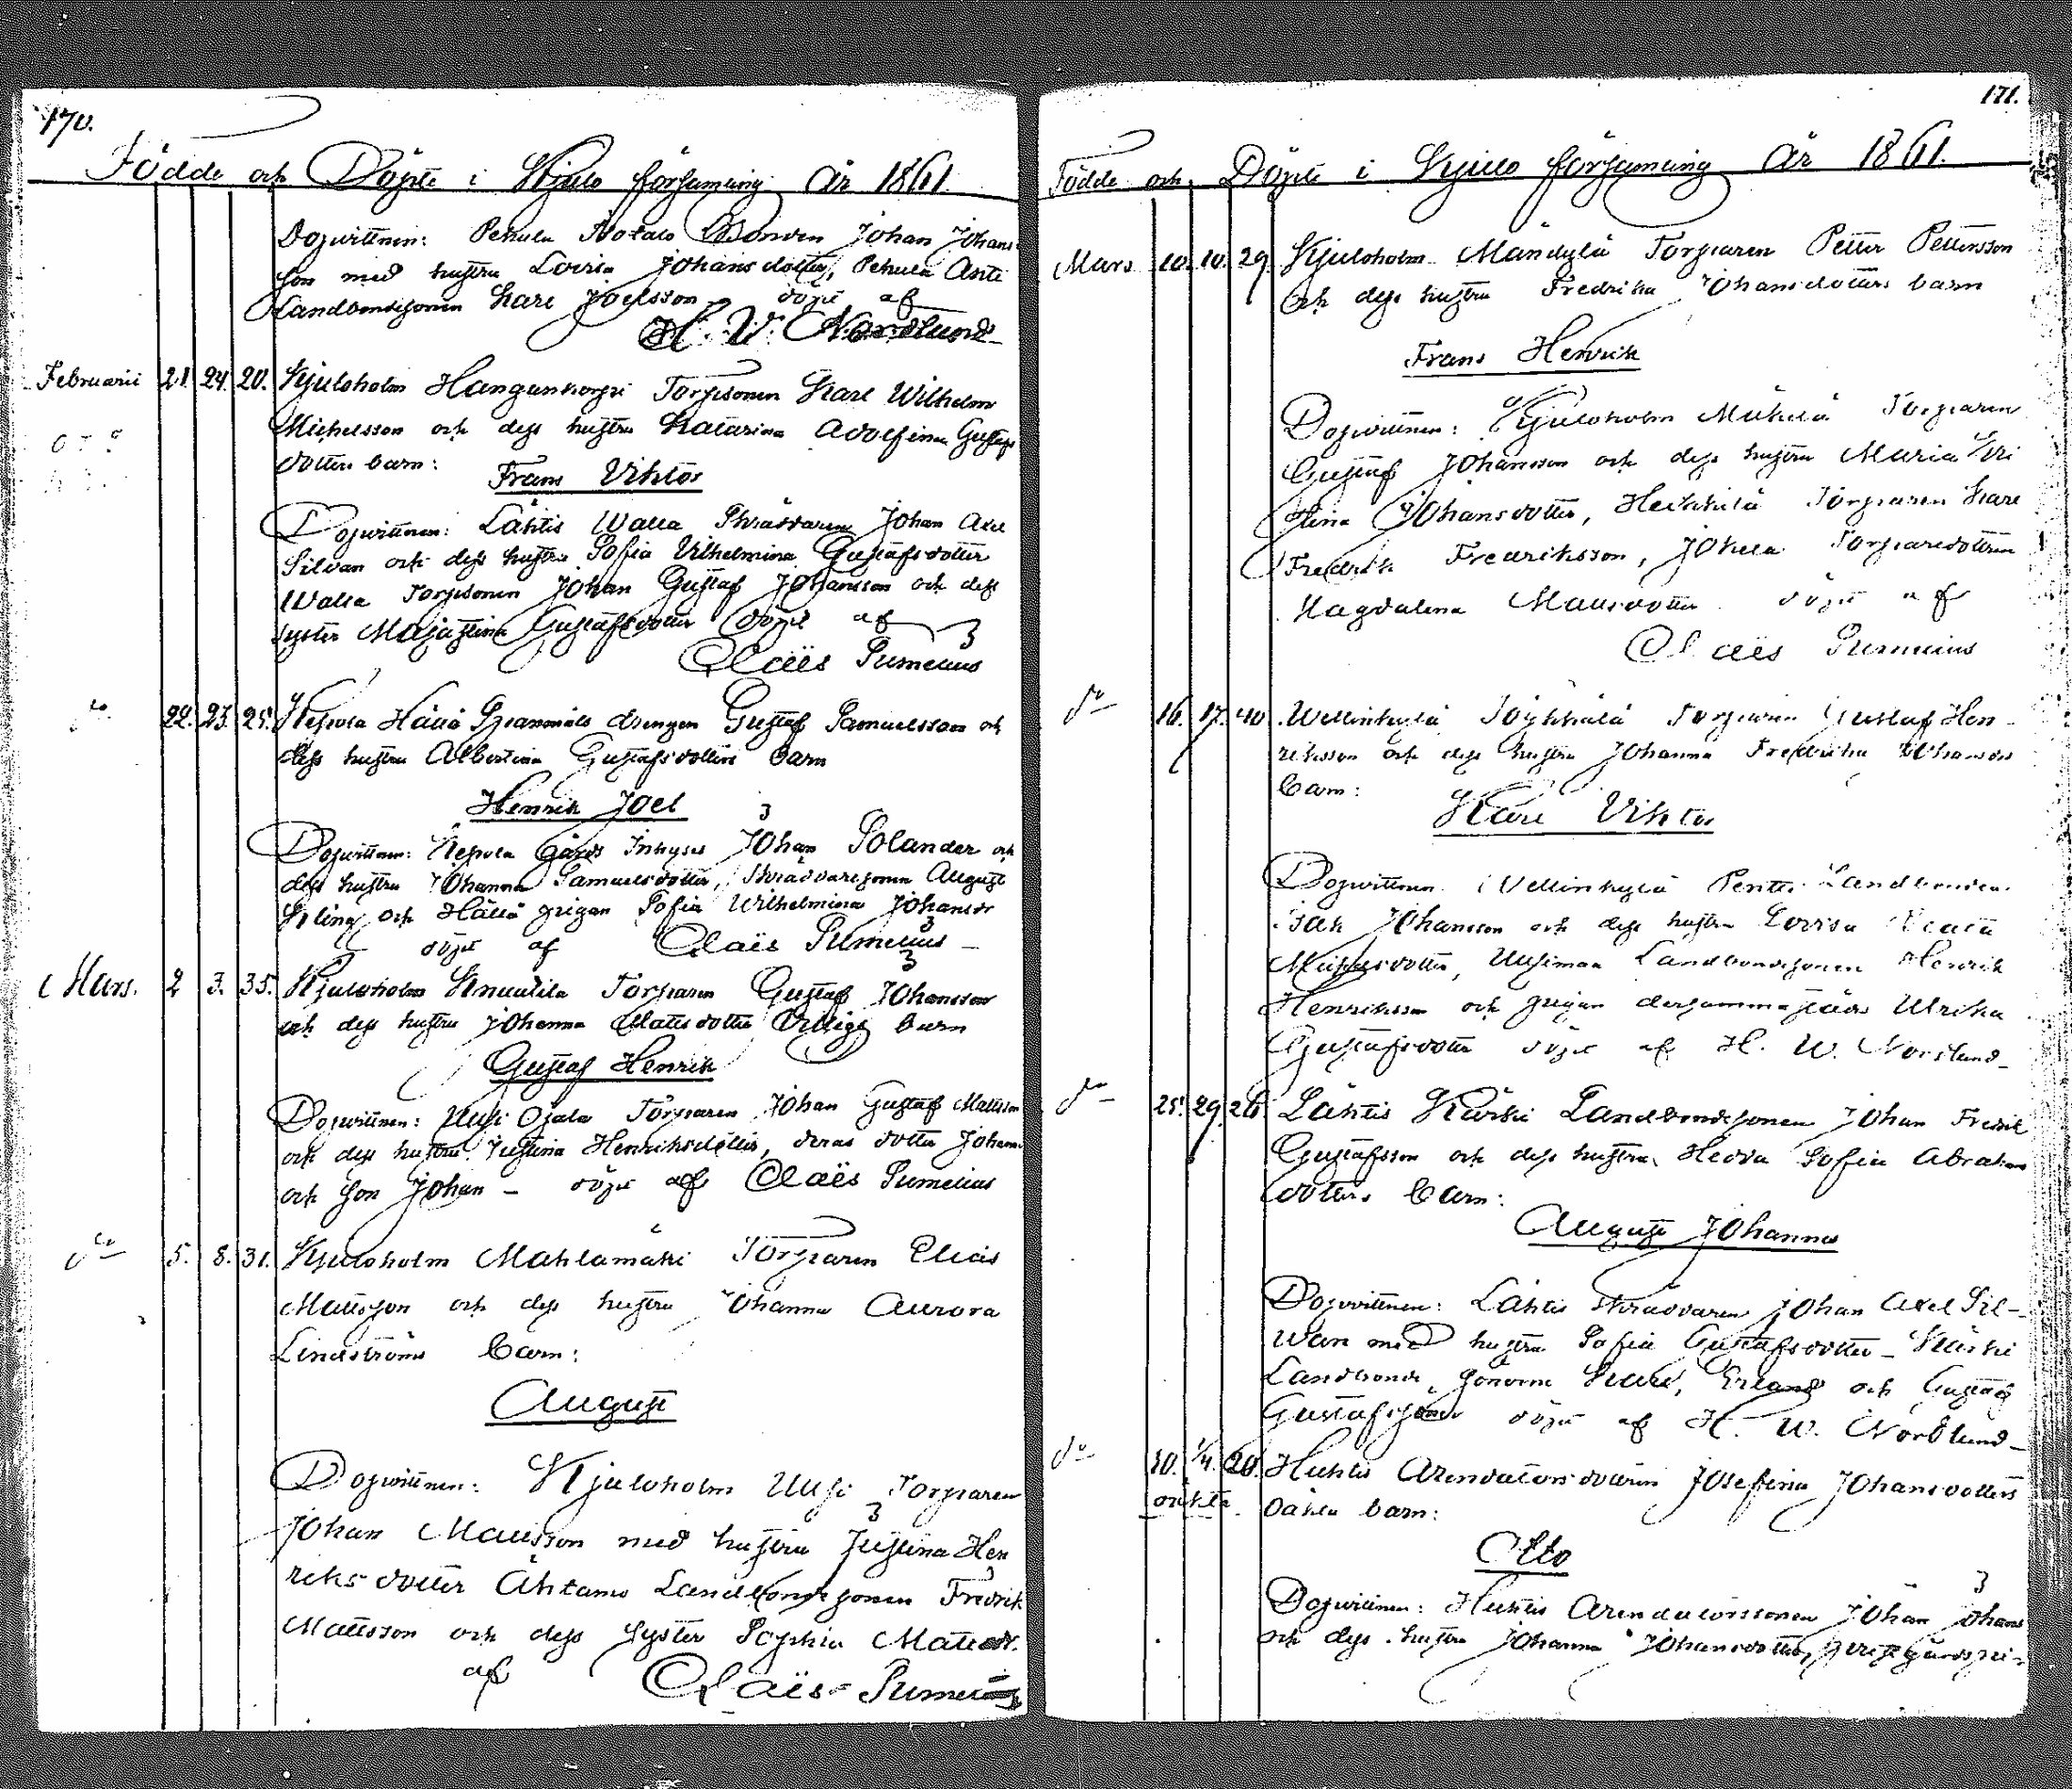 170.
Födde och Döpte i Kjulo församling År 1861.
Dopvittnen: Pehula Bonden Johan Johans
son med hustru Lovisa Johansdotter, Pehula Anti
Landbondesonen Karl Joelsson döpt af
H. W. Nordlund
Februarii 21. 24. 20. Kjuloholm Hangankorpi Torpsonen Karl Wilhelm
Michelsson och dess hustru Katarina Adolfina Gustafs
dotters barn:
Frans Viktor
Dopvittnen: Lähtis Walla Skräddaren Johan Axel
Silvan och dess hustru Sofia Vilhelmina Gustafsdotter
Walla Torpsonen Johan Gustaf Johansson och dess
syster Maja Stina Gustafsdotter döpt af
Claës Sumelius
do 22. 23. 25. Kepola Hällä drengen Gustaf Samuelsson och
dess hustru Albertina Gustafsdotters barn
Henrik Joel
Dopvittnen: Kepola Gårds Inhyses Johan Solander och
dess hustru Johanna Samuelsdotter, Skräddaresonen August
och Hällä pigan Sofia Wilhelmina Johansdr
döpt af Claës Sumelius
Mars. 2 3. 35. Kjuloholm Knuutila Torparen Gustaf Johansson
och dess hustru Johanna Matsdotter barn
Gustaf Henrik
Dopvittnen: Uusi Ojala Torparen Johan Gustaf Mattsson
och dess hustru Justina Henriksdotter, deras dotter Johanna
och son Johan – döpt af Claës Sumelius
do 5. 8. 31. Kjuloholm Mahlamäki Torparen Elias
Mattsson och dess hustru Johanna Aurora
Lindströms barn:
August
Dopvittnen: Kjuloholm Uusi Torparen
Johan Mattsson med hustru Justina Hen
riksdotter Ähtamo Landbondesonen Fredrik
Mattsson och dess syster Sophia Matsdr.
af Claës Sumelius
171.
Födde och Döpte i Kjulo församling År 1861.
Mars 10. 10. 29. Kjuloholm Mändylä Torparen Petter Pettersson
och dess hustru Fredrika Johansdotters barn
Frans Henrik
Dopvittnen: Kjuloholm Mikkilä Torparen
Gustaf Johansson och dess hustru Maria
Stina Johansdotter, Heikkilä Torparen Karl
Fredrik Fredriksson, Jokela Torparedottren
Magdalena döpt af
Claës Sumelius
do 16. 17. 40. Wellinkylä Torparen Gustaf Hen-
riksson och dess hustru Johanna Fredrika Johansdrs
barn:
Karl Viktor
Dopvittnen Vellinkylä Pentti Landbonden
Isak Johansson och dess hustru Lovisa Beata
Uusimaa Landbondesonen Henrik
Henriksson och pigan dersammastädes Ulrika
Gustafsdotter döpt af H. W. Nordlund
do 25. 29. 26. Lähtis Kärki Landbondesonen Johan Fredrik
Gustafsson och dess hustru Hedda Sofia Abrahams
dotters barn:
August Johannes
Dopvittnen: Lähtis skräddaren Johan Axel Sil-
wan med hustru Sofia Gustafsdotter – Kärki
Landbonde sönerna Karl, Erland och Gustaf
Gustafssöner döpt af H. W. Nordlund
do 30. 1/4. 20. Huhtis Arendatorsdottren Josefina Johansdotters
oäkta
oäkta barn:
Otto
Dopvittnen: Huhtis Arendatorssonen Johan Johans
och dess hustru Johanna Johansdotter,